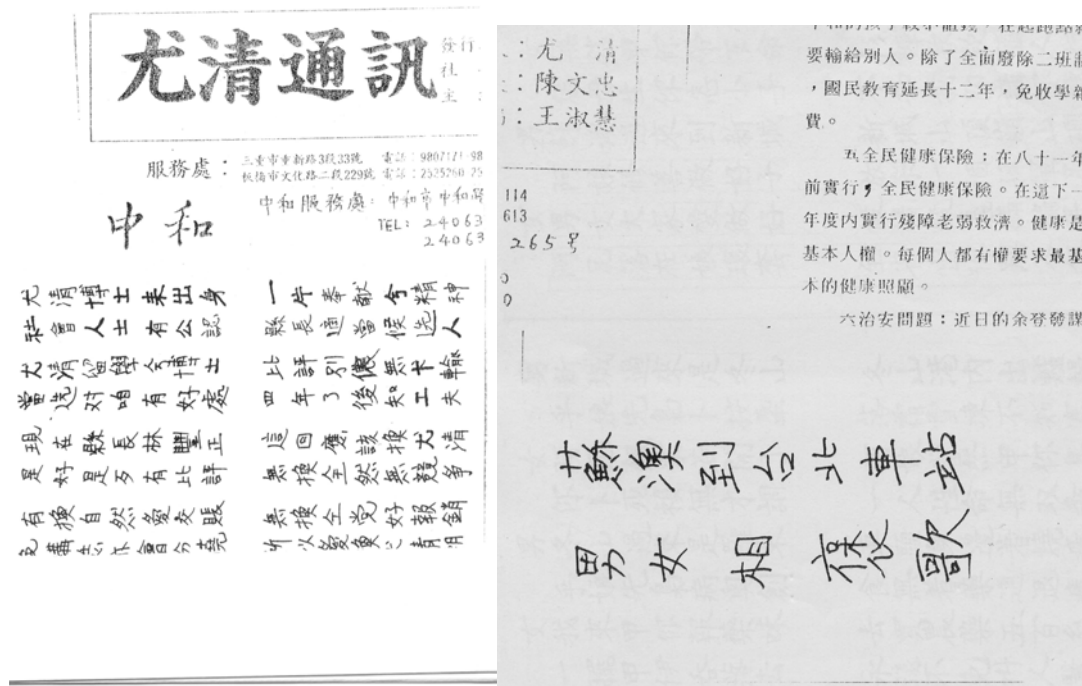 尤清通訊
發行
社
主
服務處：三重市重新路3段33號 電話：9807121·98
板橋市文化路二段229號 電話：2525260·25
中和服務處：中和市中和路
TEL: 24063
24063
中和
尤清博士未出身
社會人士有公認
尤清留學今博士
當选对咱有好處
現在縣長林豐正
是好是歹有比評
有換自然愛交賬
一片奉獻今精神
縣長適當候选人
比評別儂無卡輸
四年了後知工夫
這回應該換尤清
無換全然無競爭
無換全党好報銷
：尤 清
：陳文忠
：王淑慧
114
613
265号
0
0
要輸給別人。除了全面廢除二班
，國民教育延長十二年，免收學雜
費。
五全民健康保險：在八十一年
前實行，全民健康保險。在這下一
年度內實行殘障老弱救濟。健康是
基本人權。每個人都有權要求最基
本的健康照顧。
六治安問題：近日的余登發謀
蘇澳到台北車站
男女相褒歌